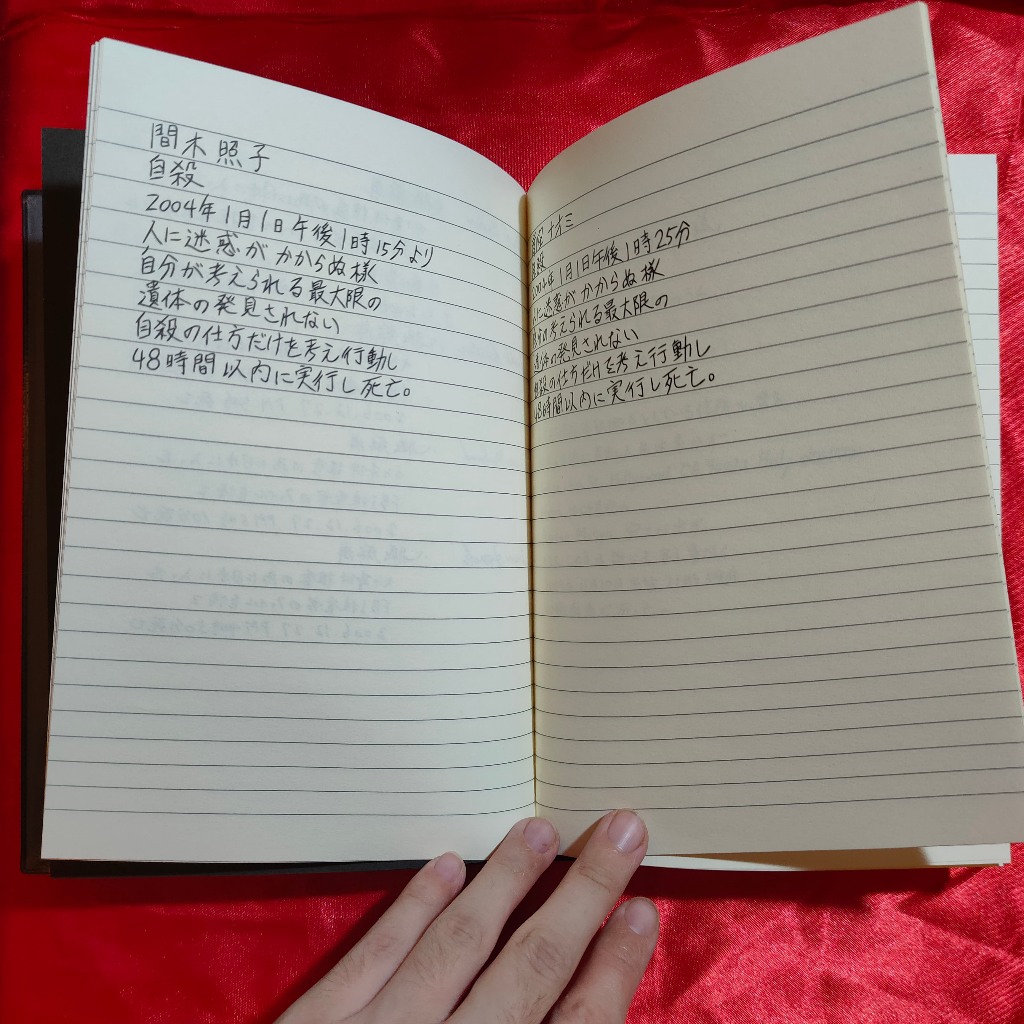 間木照子
自殺
2004年1月1日午後1時15分より
人に迷惑がかからぬ様
自分が考えられる最大限の
遺体の発見されない
自殺の仕方だけを考え行動し
48時間以内に実行し死亡。
ナオミ
1月1日午後1時25分
人に迷惑がかからぬ様
考えられる最大限の
遺体の発見されない
自殺の仕方だけを考え行動し
48時間以内に実行し死亡。